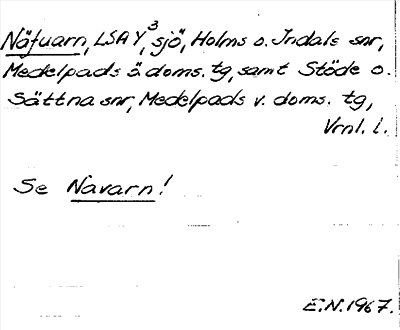 Näfuarn, LSA Y,³ sjö, Holms o. Indals snr,
Medelpads ö. doms. tg, samt Stöde o.
Sättna snr, Medelpads v. doms. tg,
Vrnl. l.
Se Navarn!
E.N. 1967.